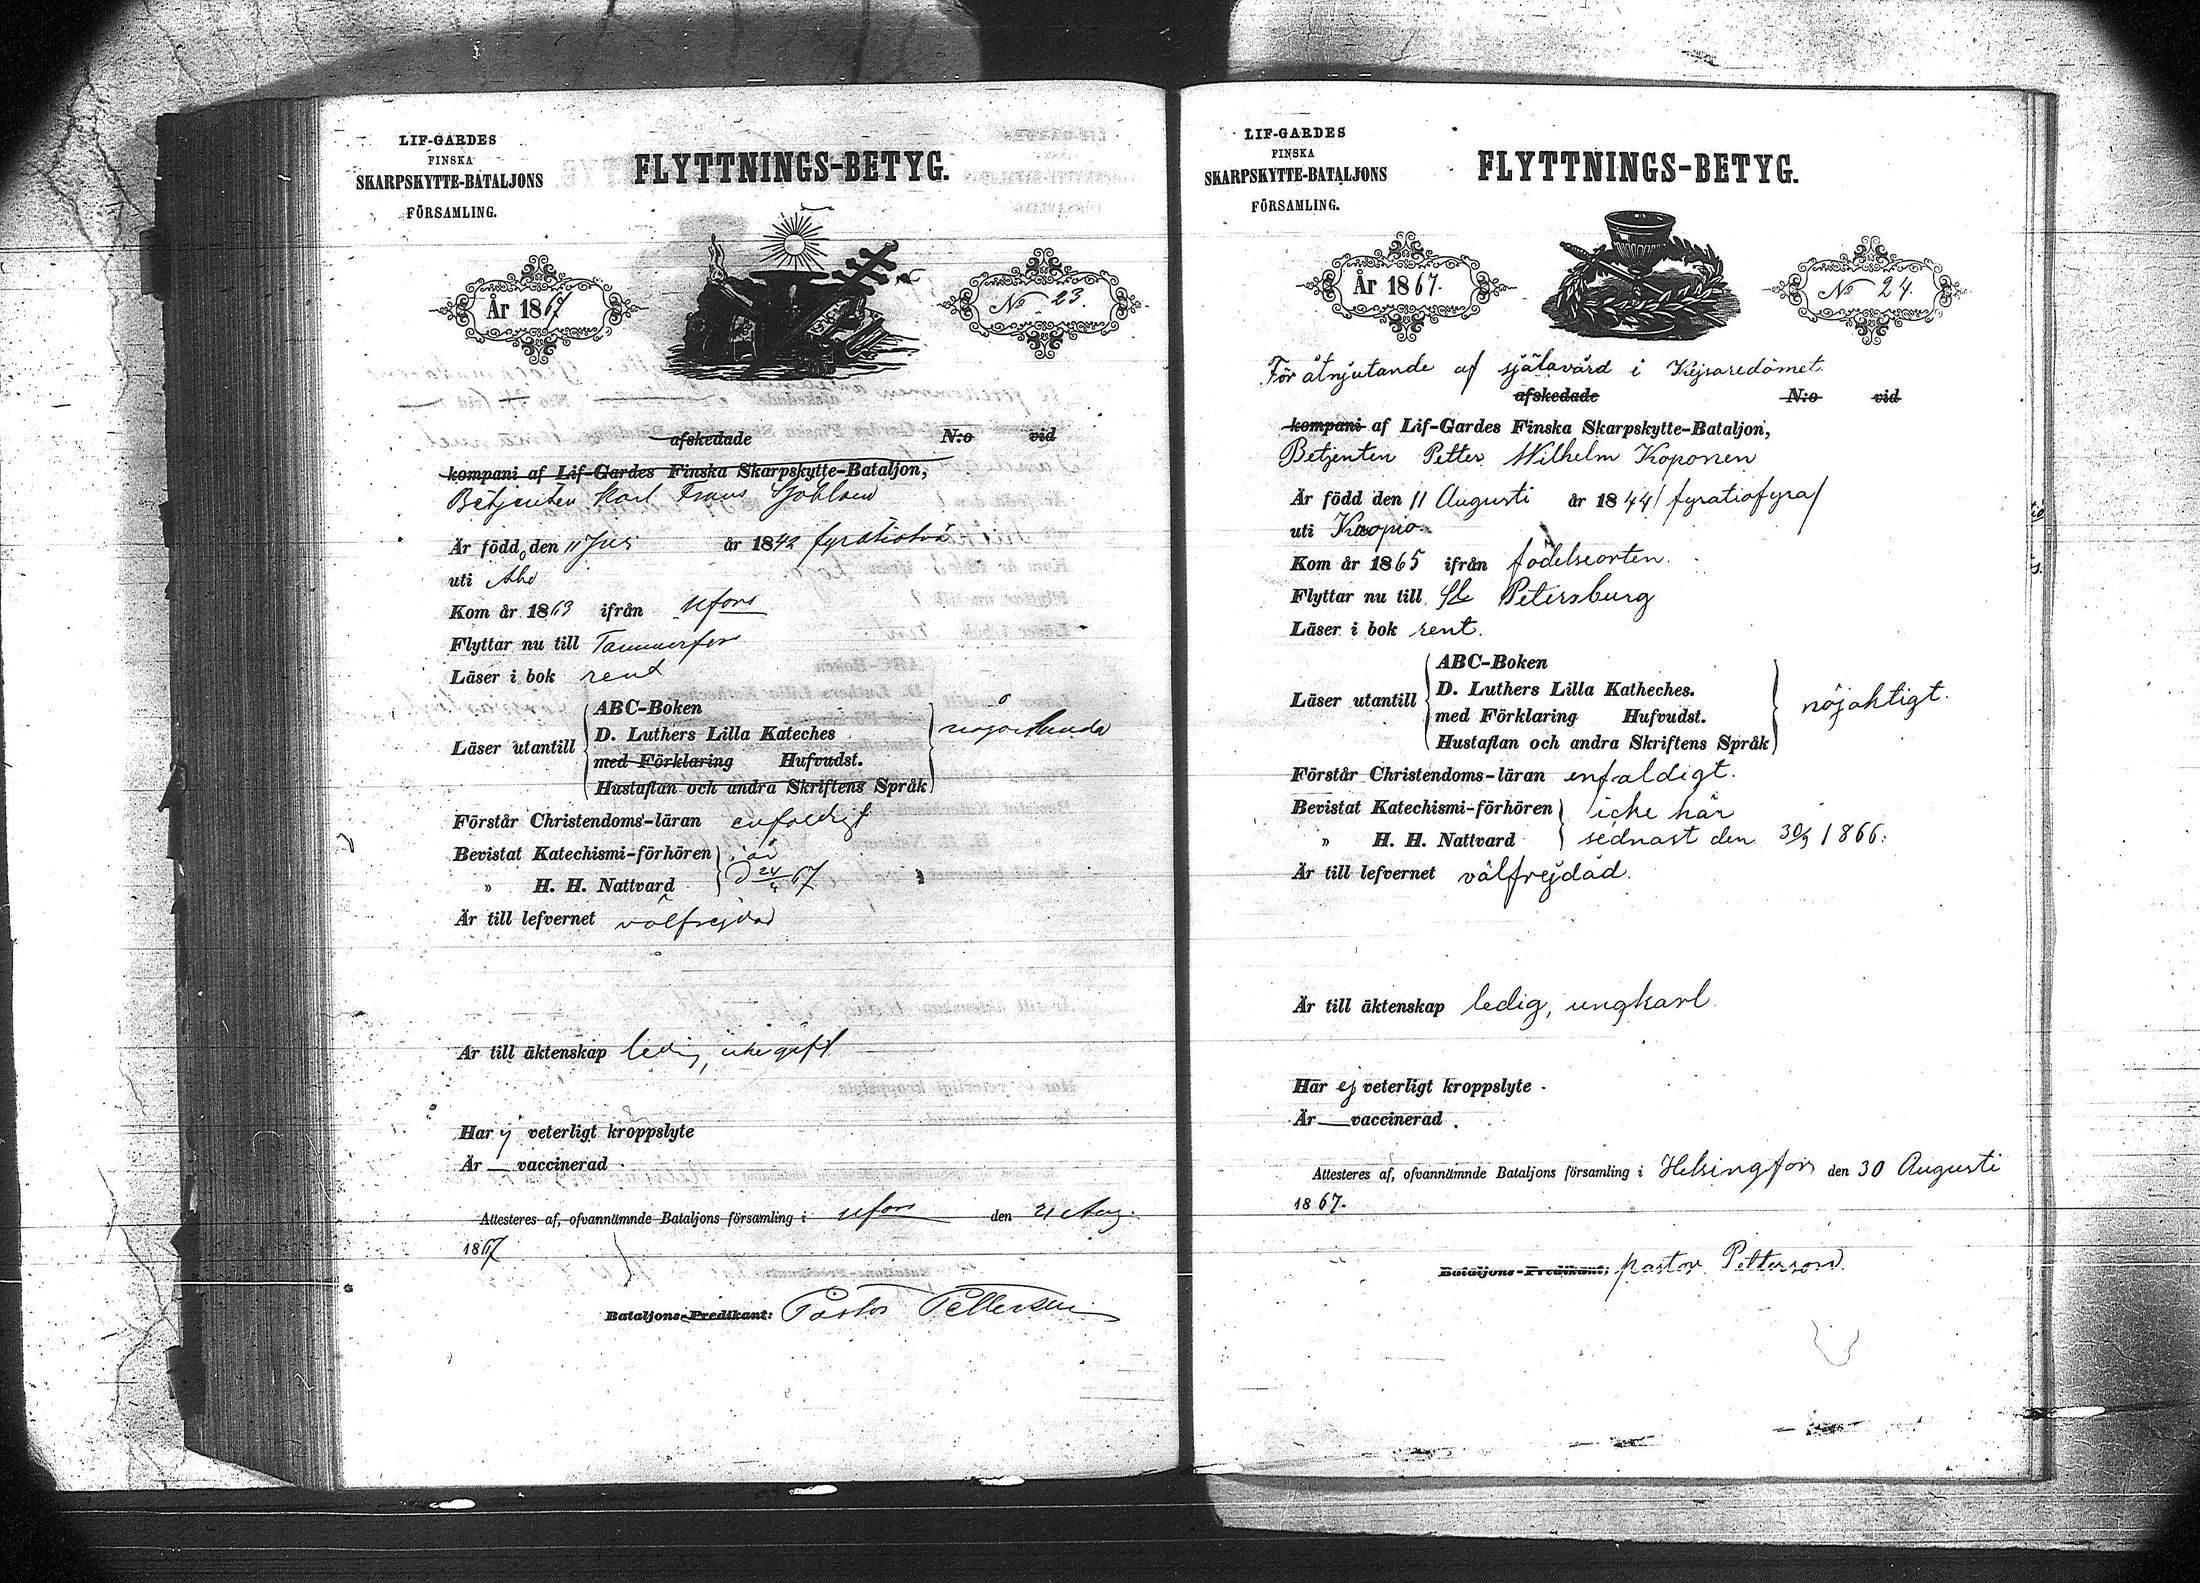 LIF-GARDES
FINSKA
SKARPSKYTTE-BATALJONS
FÖRSAMLING.
FLYTTNINGS-BETYG.
År 1867
No 23.
afskedade N:o vid
kompani af Lif-Gardes Finska Skarpskytte-Bataljon,
Betjenten Karl Frans
Är född den 11 Juli år 1842 fyratiotvå
uti Åbo
Kom år 1863 ifrån Hfors
Flyttar nu till Tammerfors
Läser i bok rent
Läser utantill
ABC-Boken
D. Luthers Lilla Kateches
med Förklaring Hufvudst.
Hustaflan och andra Skriftens Språk
någorlunda
Förstår Christendoms-läran enfaldigt
Bevistat Katechismi-förhören i år
" H. H. Nattvard 67
Är till lefvernet välfrejdad
Är till äktenskap ledig, icke gift
Har ej veterligt kroppslyte
Är — vaccinerad
Attesteres af, ofvannämnde Bataljons församling i Hfors den 21 Aug.
1867
Bataljons-Predikant: Pastor Petterson
LIF-GARDES
FINSKA
SKARPSKYTTE-BATALJONS
FÖRSAMLING.
FLYTTNINGS-BETYG.
År 1867.
No 24.
För åtnjutande af själavård i Kejsaredömet
afskedade N:o vid
kompani af Lif-Gardes Finska Skarpskytte-Bataljon,
Betjenten Petter Wilhelm Koponen
Är född den 11 Augusti år 1844 / fyratiofyra /
uti Kuopio
Kom år 1865 ifrån födelseorten.
Flyttar nu till St Petersburg
Läser i bok rent.
Läser utantill
ABC-Boken
D. Luthers Lilla Katheches.
med Förklaring Hufvudst.
Hustaflan och andra Skriftens Språk
nöjaktigt.
Förstår Christendoms-läran enfaldigt.
Bevistat Katechismi-förhören icke här
" H. H. Nattvard sednast den 30/9 1866.
Är till lefvernet välfrejdad.
Är till äktenskap ledig, ungkarl
Har ej veterligt kroppslyte.
Är — vaccinerad.
Attesteres af, ofvannämnde Bataljons församling i Helsingfors den 30 Augusti
1867.
Bataljons-Predikant: pastor Petterson.